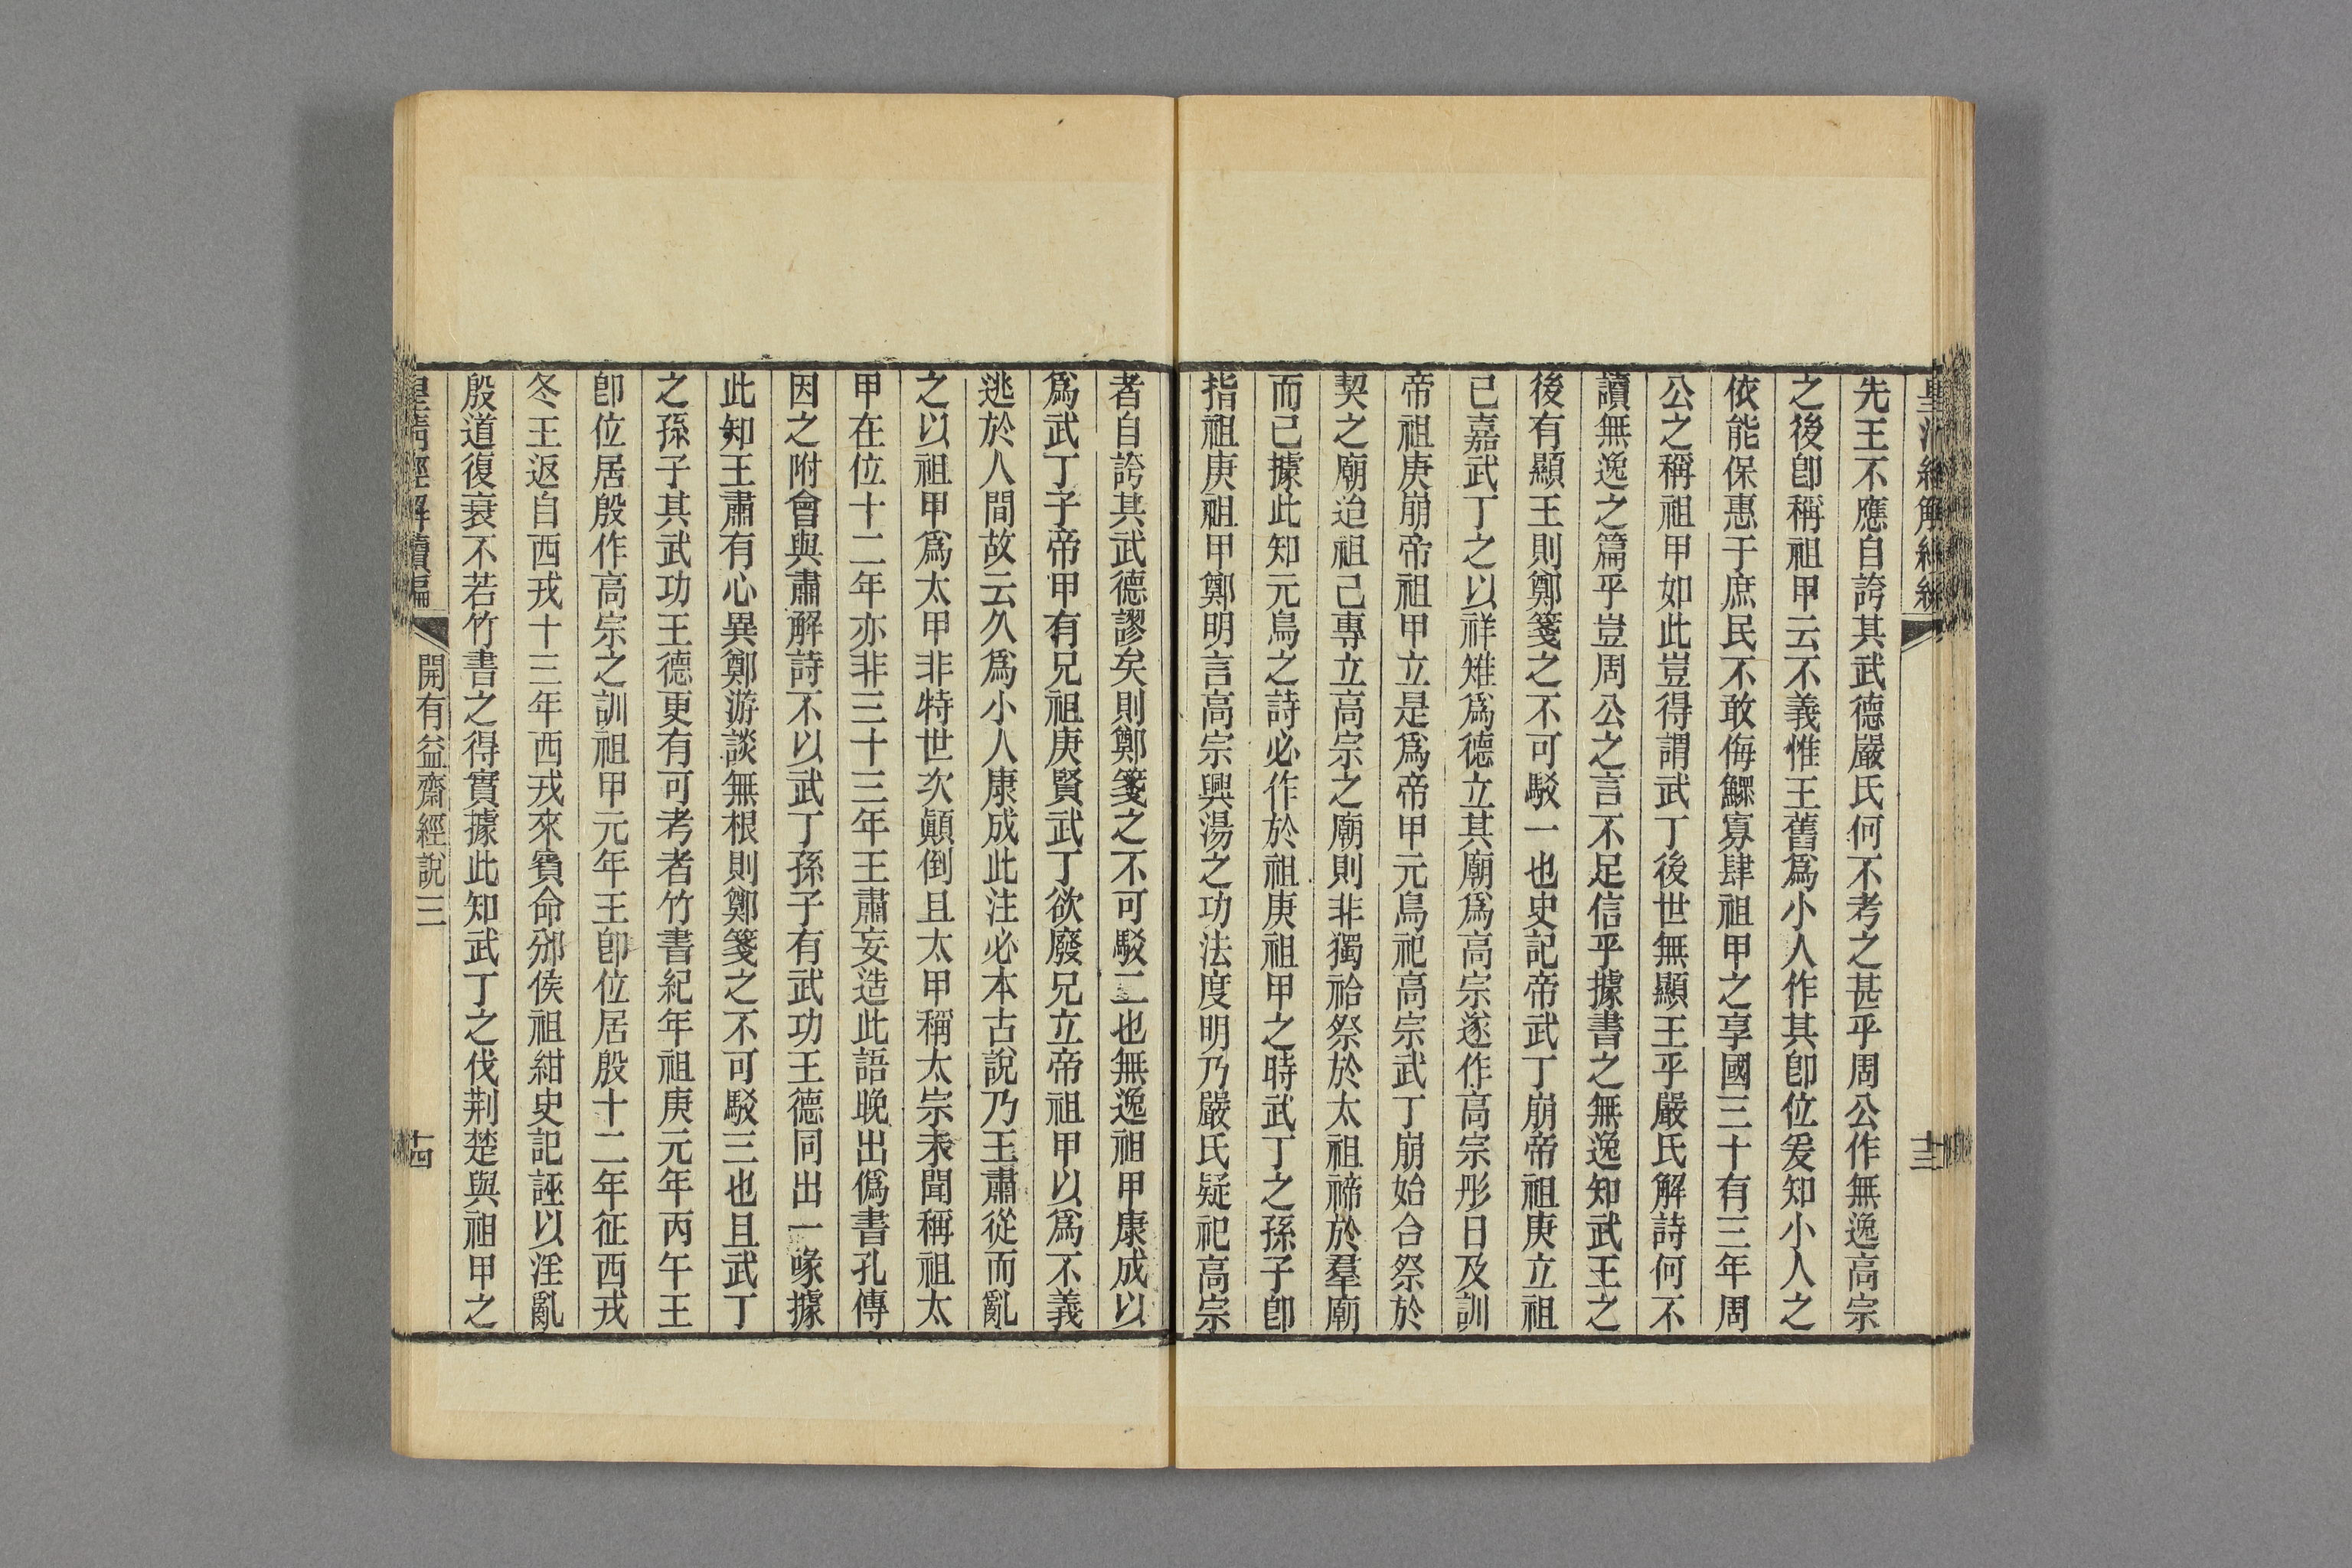 先王不應自誇其武德嚴氏何不考之甚乎周公作無逸高宗
之後卽稱祖甲云不義惟王舊爲小人作其卽位爰知小人之
依能保惠于庶民不敢侮鰥寡肆祖甲之享國三十有三年周
公之稱祖甲如此豈得謂武丁後世無顯王乎嚴氏解詩何不
讀無逸之篇乎豈周公之言不足信乎據書之無逸知武王之
後有顯王則鄭箋之不可駁一也史記帝武丁崩帝祖庚立祖
己嘉武丁之以祥雉爲德立其廟爲高宗遂作高宗肜日及訓
帝祖庚崩帝祖甲立是爲帝甲元鳥祀高宗武丁崩始合祭於
契之廟迨祖己專立高宗之廟則非獨祫祭於太祖禘於羣廟
而已據此知元鳥之詩必作於祖庚祖甲之時武丁之孫子卽
指祖庚祖甲鄭明言高宗興湯之功法度明乃嚴氏疑祀高宗
者自誇其武德謬矣則鄭箋之不可駁二也無逸祖甲康成以
爲武丁子帝甲有兄祖庚賢武丁欲廢兄立帝祖甲以爲不義
逃於人間故云久爲小人康成此注必本古說乃王肅從而亂
之以祖甲爲太甲非特世次顛倒且太甲稱太宗未聞稱祖太
甲在位十二年亦非三十三年王肅妄造此語晚出僞書孔傳
因之附會與肅解詩不以武丁孫子有武功王德同出一喙據
此知王肅有心異鄭游談無根則鄭箋之不可駁三也且武丁
之孫子其武功王德更有可考者竹書紀年祖庚元年丙午王
卽位居殷作高宗之訓祖甲元年王卽位居殷十二年征西戎
冬王返自西戎十三年西戎來賓命邠侯祖紺史記誣以淫亂
殷道復衰不若竹書之得實據此知武丁之伐荆楚與祖甲之
皇淸經解續編
開有益齋經說三
十四